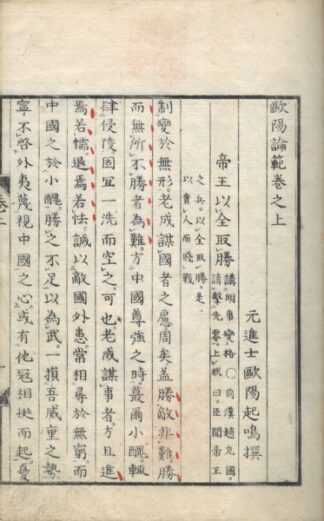 歐陽論範卷之上
元進士歐陽起鳴撰
帝王以全取勝
講明事變格〇前漢趙充國
請擊先零上狀曰臣聞帝王
之兵以全取勝是
以貴而賤戰
制變於無形老成謀國者之慮周矣蓋勝敵非難勝
而無所不勝者為難方中國尊強之時蕞爾小醜輒
肆侵陵固宜一洗而空之可也老成謀事者方且進
焉若懦退焉若怯誠以敵國外患常相尋於無窮而
中國之於小醜勝之不足以為武一損吾威重之勢
寧不啓外夷蔑視中國之心或有他寇相挻而起憂